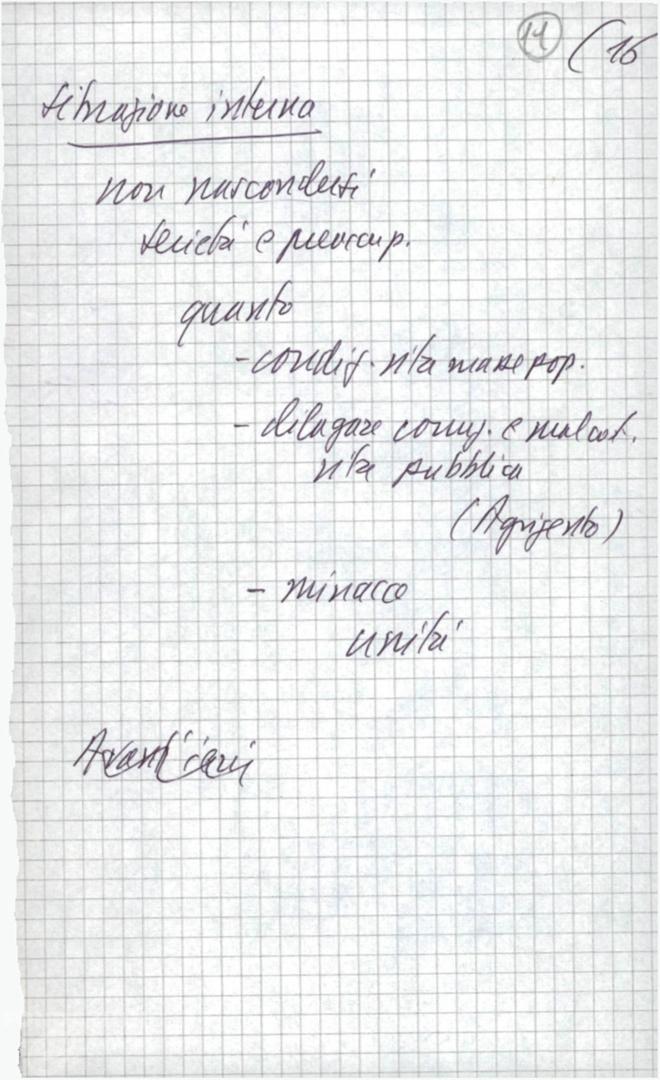 11 (16
situazione interna
non nascondersi
serietà e preoccup.
quanto
- condiz. vita masse pop.
- dilagare corruz. e malcost.
vita pubblica
(Agrigento)
- minacce
unità